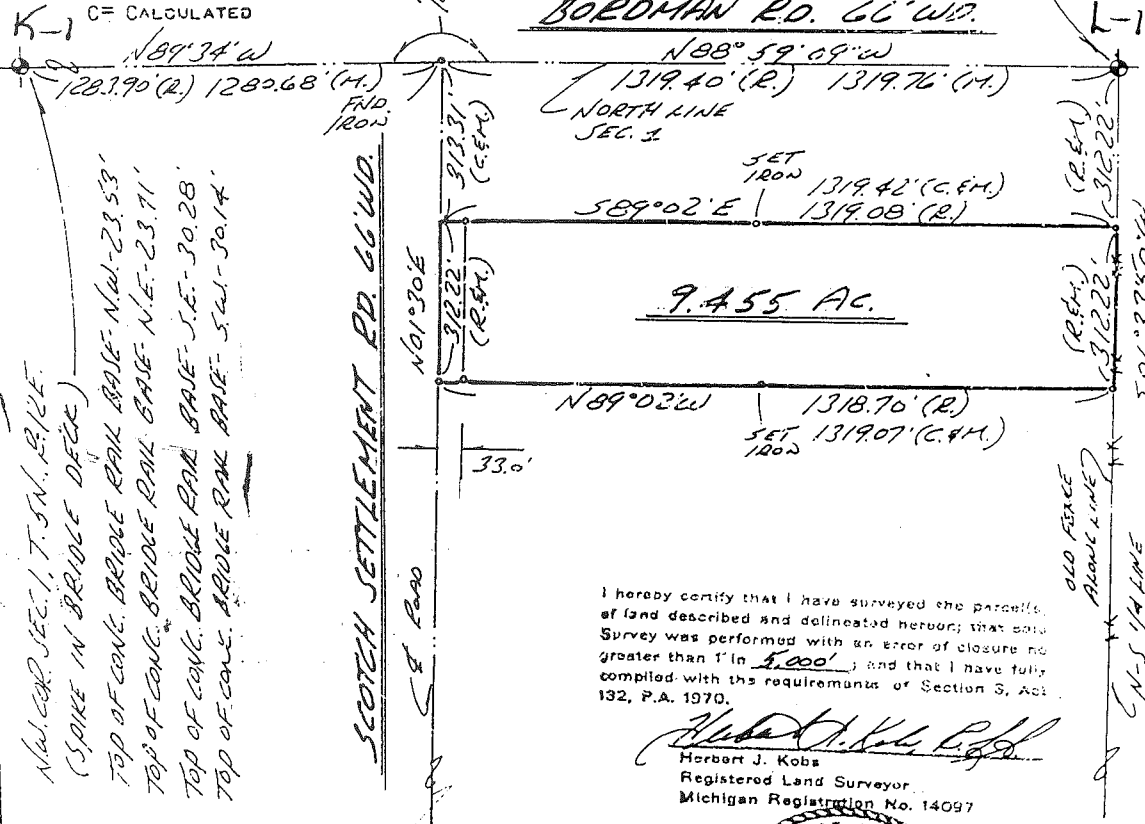 C= CALCULATED
K-1
BORDMAN RD. 66' WD.
L-1
N89°34'W
1283.90'(R.) 1280.68'(M.)
FND.
IRON
N88°59'09"W
1319.40'(R.) 1319.76'(M.)
NORTH LINE
SEC. 1
313.31'
(C.&M.)
(R.&M.)
312.22'
SET
IRON
1319.42'(C.&M.)
S89°02'E
1319.08'(R.)
N01°30'E
312.22'
(R.&M.)
9.455 AC.
(R.&M.)
312.22'
N89°02'W
1318.70'(R.)
SET
IRON
1319.07'(C.&M.)
33.0'
SCOTCH SETTLEMENT RD. 66' WD.
℄ ROAD
OLD FENCE
ALONG LINE
N-S 1/4 LINE
N.W. COR. SEC. 1, T.5N., R.12E.
(SPIKE IN BRIDGE DECK)
TOP OF CONC. BRIDGE RAIL BASE- N.W.-23.53'
TOP OF CONC. BRIDGE RAIL BASE- N.E.-23.71'
TOP OF CONC. BRIDGE RAIL BASE- S.E.-30.28'
TOP OF CONC. BRIDGE RAIL BASE- S.W.-30.14'
I hereby certify that I have surveyed the parcel(s)
of land described and delineated hereon; that said
Survey was performed with an error of closure no
greater than 1' in 5,000' ; and that I have fully
complied with the requirements of Section 3, Act
132, P.A. 1970.
Herbert J. Kobs
Registered Land Surveyor
Michigan Registration No. 14097